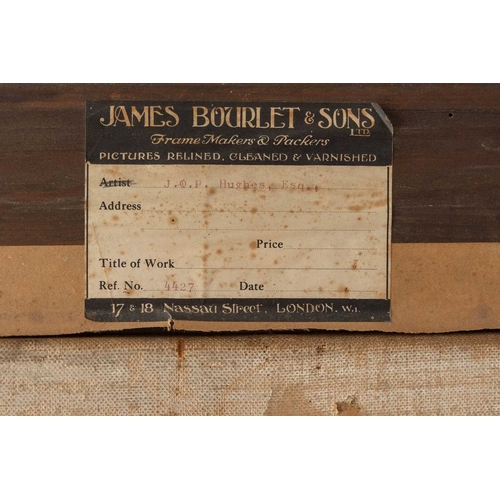 JAMES BOURLET & SONS LTD.
Frame Makers & Packers
PICTURES RELINED, CLEANED & VARNISHED
Artist J.O.P. Hughes, Esq.,
Address
Price
Title of Work
Ref. No. 4427 Date
17 & 18 Nassau Street, LONDON, W.1.